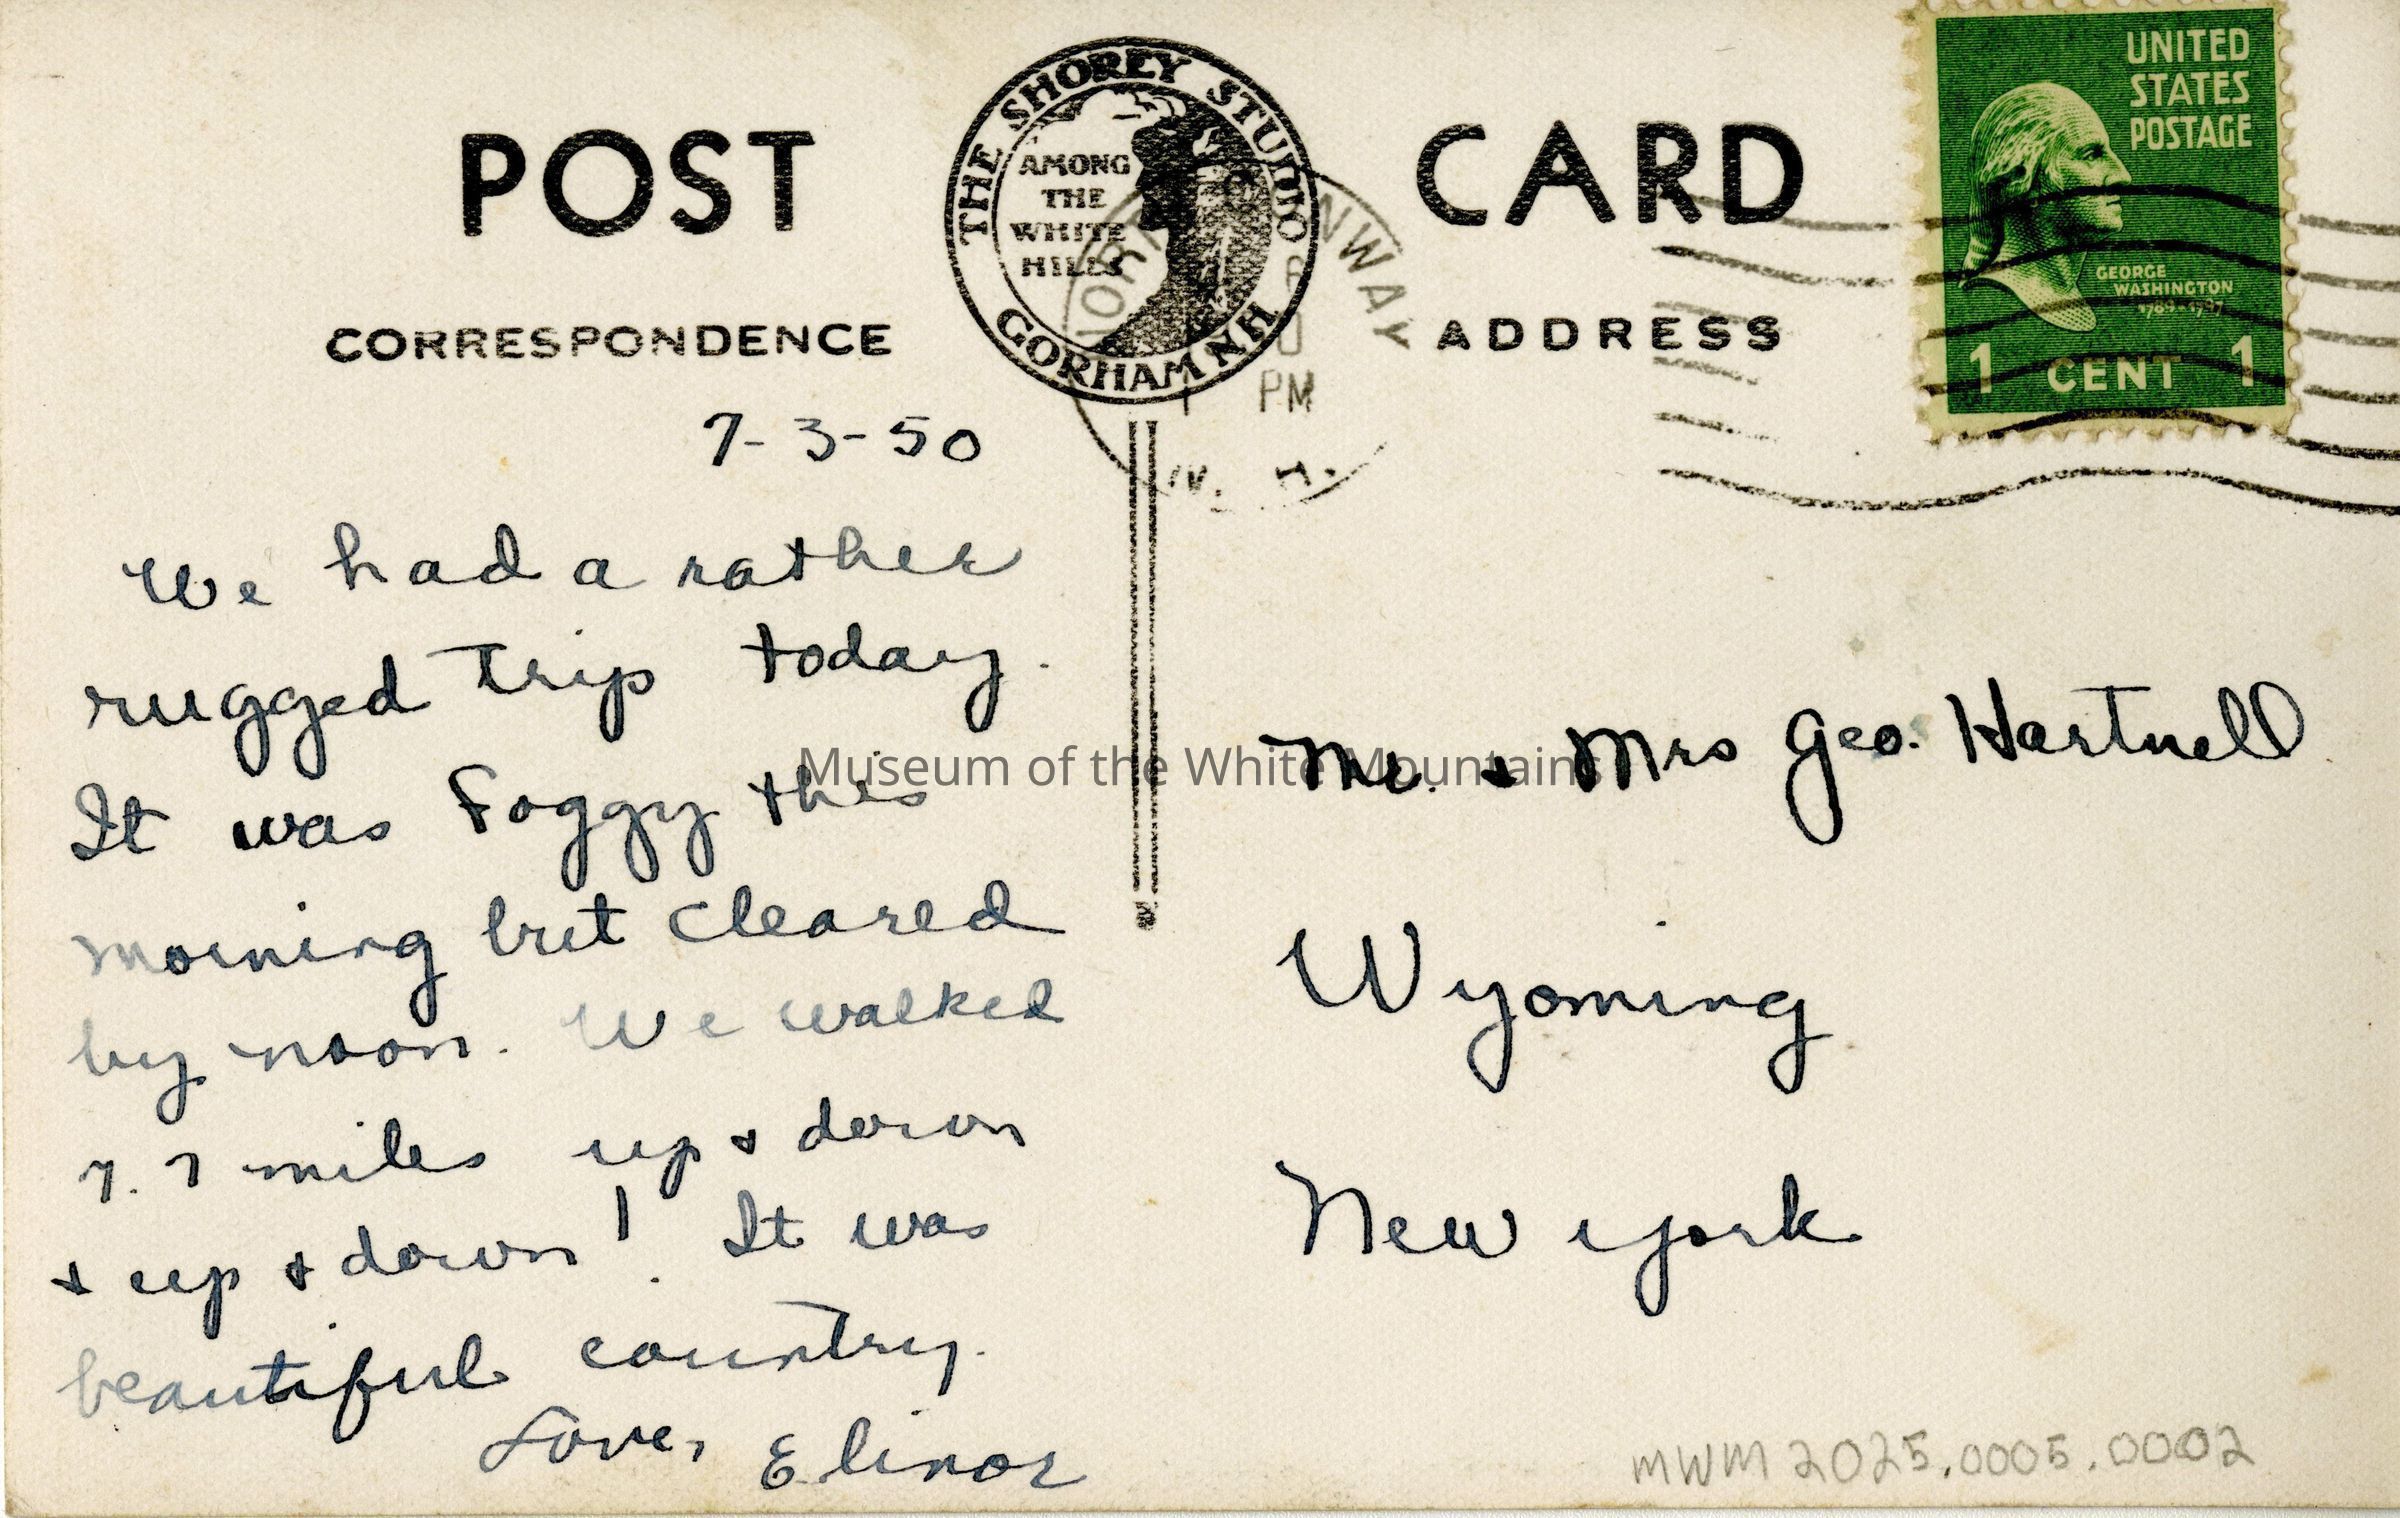 POST CARD
THE SHOREY STUDIO
AMONG
THE
WHITE
HILLS
GORHAM N.H.
UNITED
STATES
POSTAGE
GEORGE
WASHINGTON
1789-1797
1 CENT 1
NORTH CONWAY
PM
N. H.
CORRESPONDENCE
ADDRESS
7-3-50
We had a rather
rugged trip today.
It was foggy this
morning but cleared
by noon. We walked
7.7 miles up & down
& up & down! It was
beautiful country.
Love, Elinor
Mr. & Mrs Geo. Hartnell
Wyoming
New York
Museum of the White Mountains
MWM 2025.0005.0002